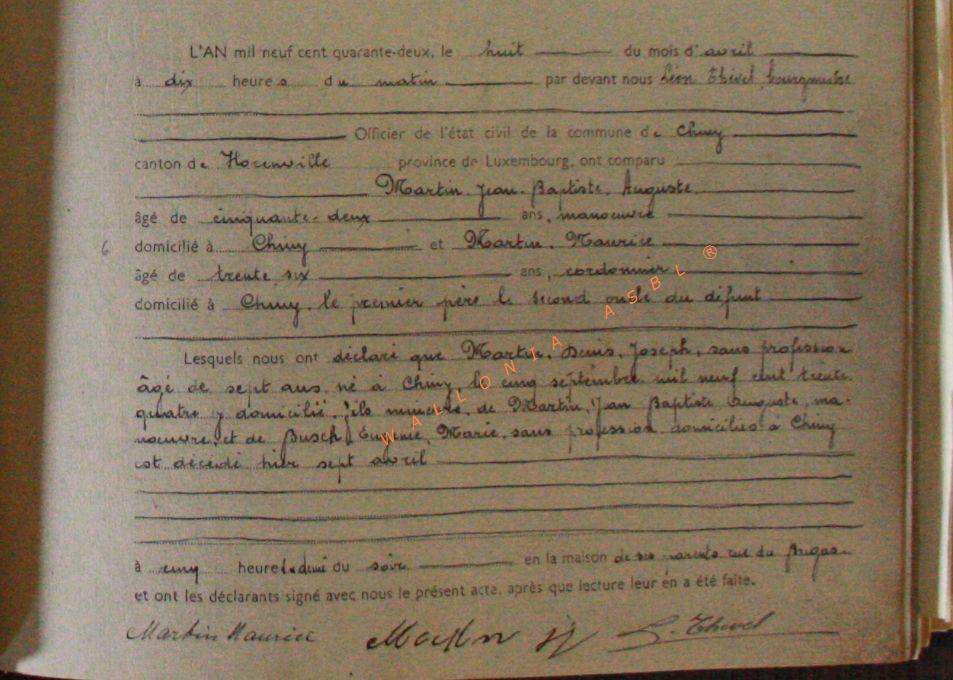 L'AN mil neuf cent quarante-deux, le huit du mois d'avril
à dix heures du matin par devant nous Léon Thével, bourgmestre
Officier de l'état civil de la commune de Chiny
canton de Florenville province de Luxembourg, ont comparu
Martin, Jean-Baptiste, Auguste,
âgé de cinquante-deux ans, manoeuvre
6 domicilié à Chiny et Martin, Maurice
âgé de trente six ans, cordonnier
domicilié à Chiny, le premier père le second oncle du défunt
Lesquels nous ont déclaré que Martin, Denis, Joseph, sans profession
âgé de sept ans né à Chiny, le cinq septembre mil neuf cent trente
quatre y domicilié, fils mineur de Martin, Jean Baptiste Auguste, ma-
noeuvre, et de Busch, Eugénie, Marie, sans profession domiciliés à Chiny
est décédé hier sept avril
à cinq heures & demi du soir en la maison de ses parents rue du
et ont les déclarants signé avec nous le présent acte, après que lecture leur en a été faite.
Martin Maurice Martin JB L. Thével
WALLONIA ASBL ®